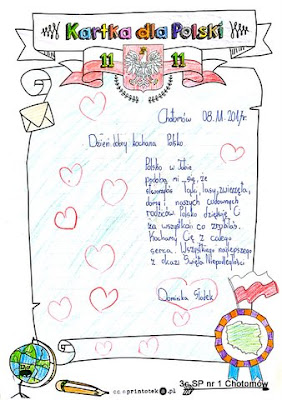 Kartka dla Polski
11 11
Chotomów 08.11.2017r.
Dzień dobry kochana Polsko
Polsko w Tobie
podoba mi się, że
stworzyłaś łąki, lasy, zwierzęta,
domy i naszych cudownych
rodziców Polsko dziękuję Ci
za wszystko co zrobiłaś.
Kochamy Cię z całego
serca. Wszystkiego najlepszego
z okazji Święta Niepodległości
Dominika
printoteka.pl
3c SP nr 1 Chotomów